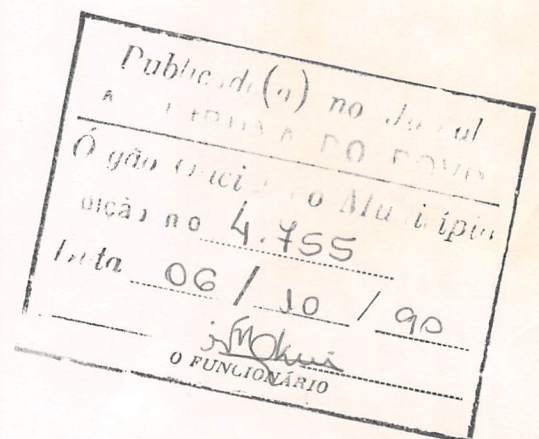 Publicado(a) no Jornal
A TRIBUNA DO POVO
Órgão Oficial do Município
Edição no 4.755
Data 06 / 10 / 90
O FUNCIONÁRIO